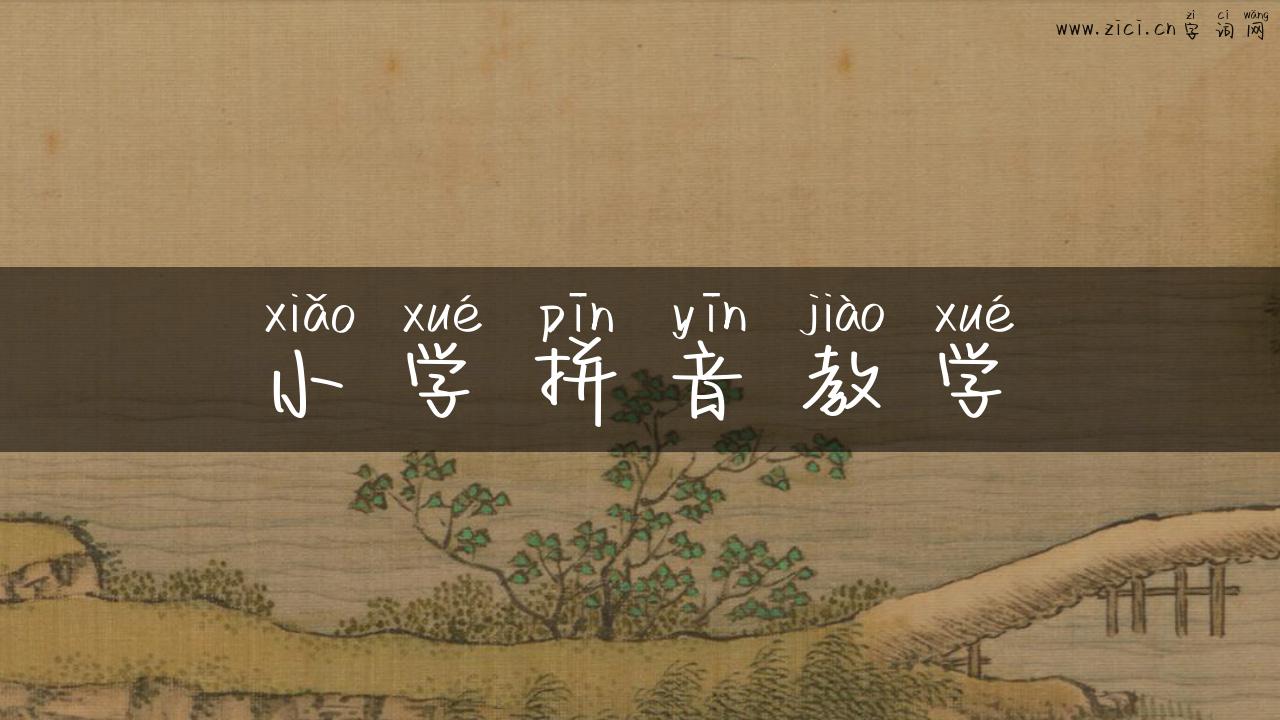 zì cí wǎng
www.zici.cn 字词网
xiǎo xué pīn yīn jiào xué
小学拼音教学